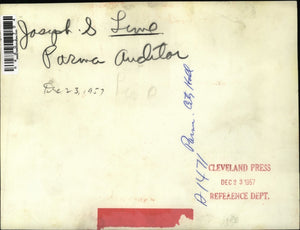 Joseph S
Parma Auditor
Dec 23, 1957
D1471 Parma City Hall
CLEVELAND PRESS
DEC 23 1957
REFERENCE DEPT.